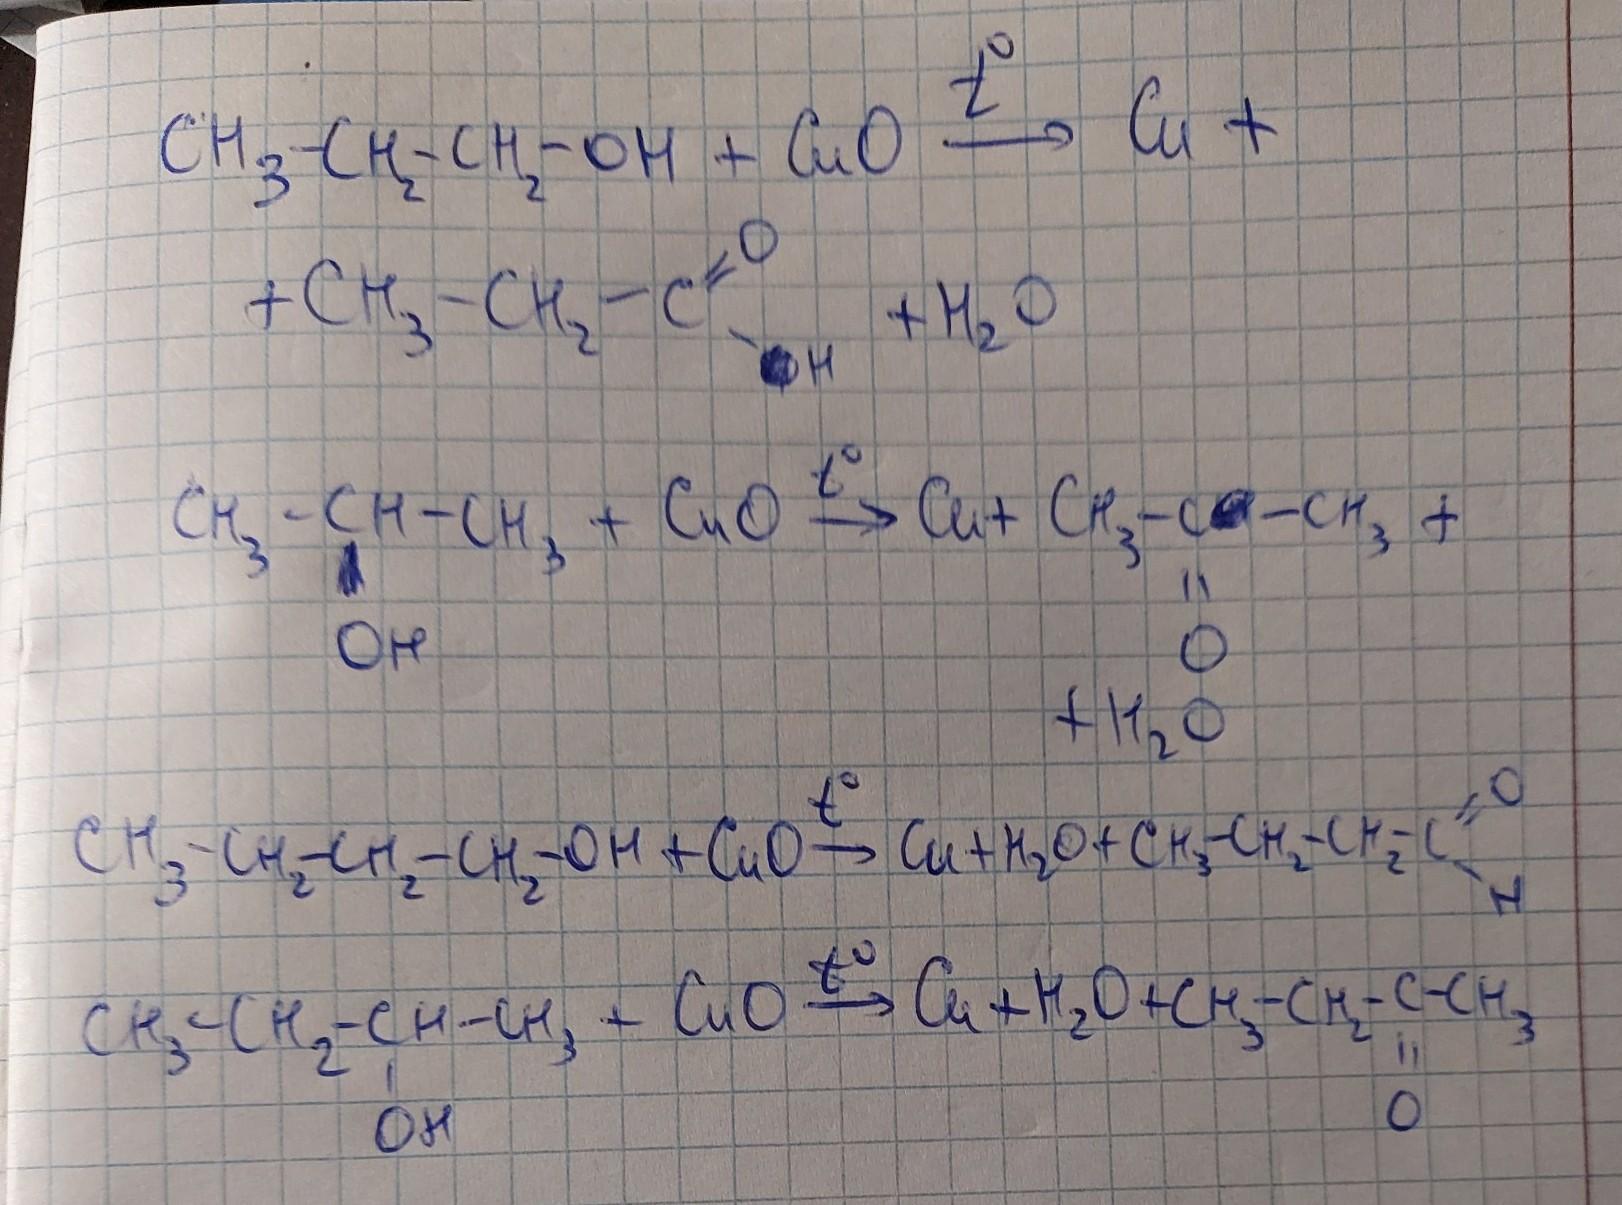 CH₃-CH₂-CH₂-OH + CuO t° → Cu +
+ CH₃-CH₂-C=O H + H₂O
CH₃-CH-CH₃ + CuO t° → Cu + CH₃-C-CH₃ +
OH = O
+ H₂O
CH₃-CH₂-CH₂-CH₂-OH + CuO t° → Cu + H₂O + CH₃-CH₂-CH₂-C=O H
CH₃-CH₂-CH-CH₃ + CuO t° → Cu + H₂O + CH₃-CH₂-C-CH₃
OH = O